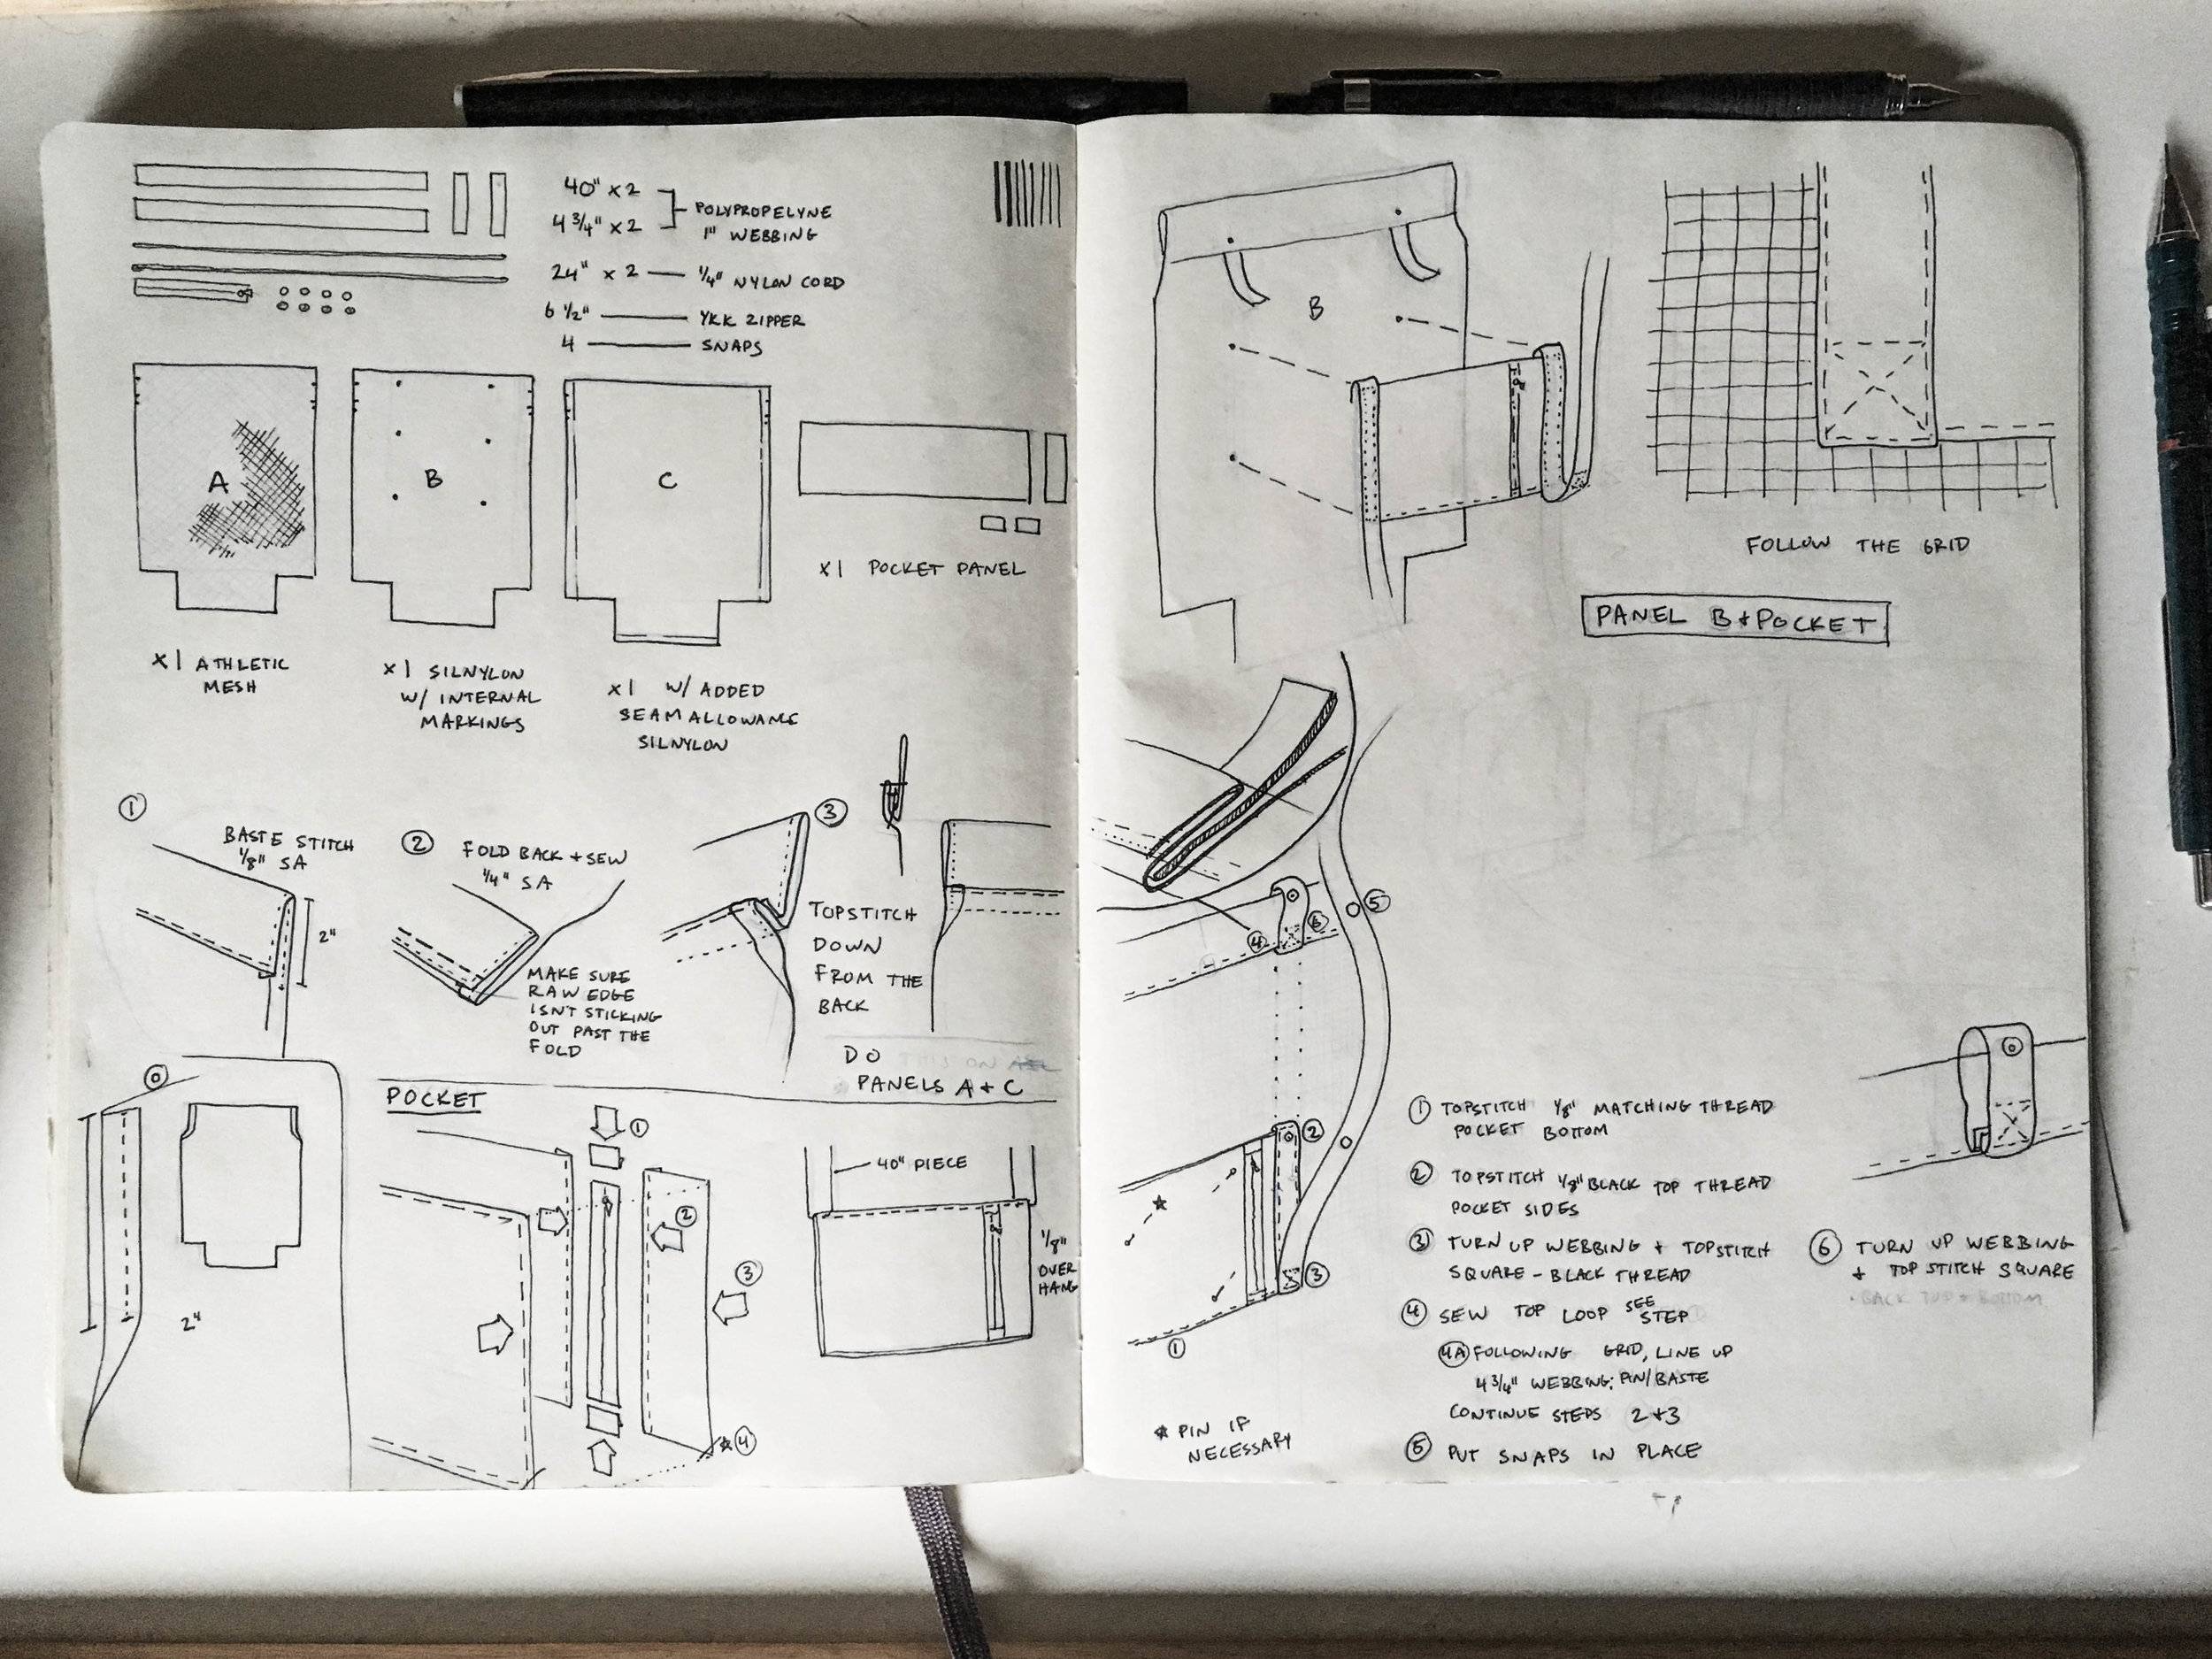 40" x 2
4 3/4" x 2
POLYPROPELYNE
1" WEBBING
24" x 2 — 1/4" NYLON CORD
6 1/2" — YKK ZIPPER
4 — SNAPS
A
B
C
x1 ATHLETIC
MESH
x1 SILNYLON
W/ INTERNAL
MARKINGS
x1 W/ ADDED
SEAM ALLOWANCE
SILNYLON
x1 POCKET PANEL
1
BASTE STITCH
1/8" SA
2"
2
FOLD BACK + SEW
1/4" SA
MAKE SURE
RAW EDGE
ISN'T STICKING
OUT PAST THE
FOLD
3
TOPSTITCH
DOWN
FROM THE
BACK
DO THIS ON
PANELS A + C
0
2"
POCKET
1
2
3
★4
40" PIECE
1/8"
OVER
HANG
B
FOLLOW THE GRID
PANEL B + POCKET
5
4
6
2
3
1
★ PIN IF
NECESSARY
1 TOPSTITCH 1/8" MATCHING THREAD
POCKET BOTTOM
2 TOPSTITCH 1/8" BLACK TOP THREAD
POCKET SIDES
3 TURN UP WEBBING + TOPSTITCH
SQUARE - BLACK THREAD
4 SEW TOP LOOP SEE
STEP
4A FOLLOWING GRID, LINE UP
4 3/4" WEBBING; PIN/BASTE
CONTINUE STEPS 2+3
5 PUT SNAPS IN PLACE
6 TURN UP WEBBING
+ TOP STITCH SQUARE
· BACK TOP + BOTTOM